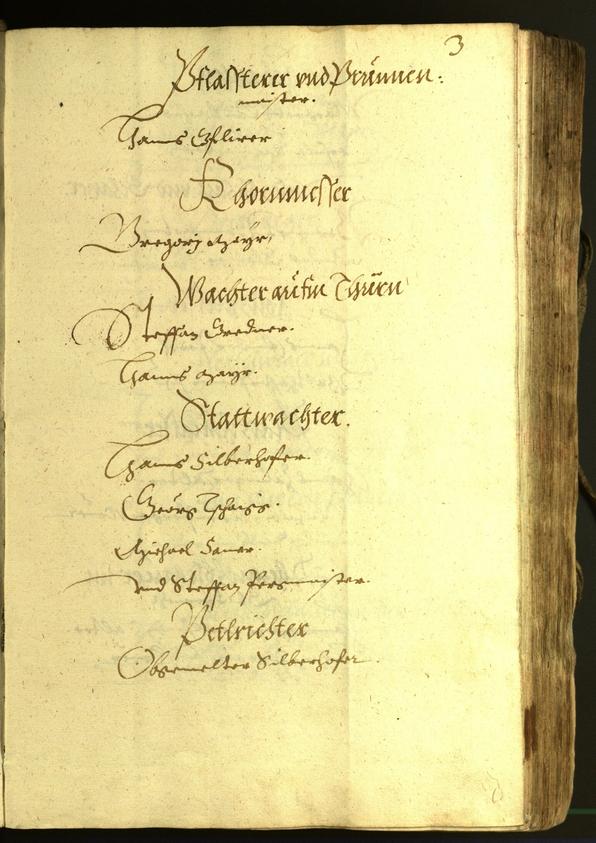 3
Pflassterer vnd Prünnen:
maister.
Hanns Gflirer
Khornmesser
Gregorj Mayr,
Wachter aufm Thurn
Steffan Gredner.
Hanns Mayr.
Stattwachter.
Hanns Silberhofer.
Georg Tschaiss.
Michael Saurer.
vnd Steffan Permaister.
Petlrichter
Obgemelter Silberhofer